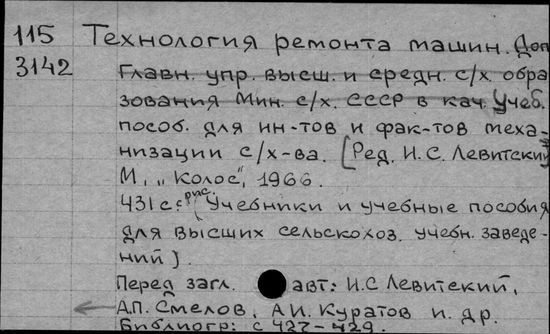 115 Технология ремонта машин. Доп
3142 Главн. упр. высш. и средн. с/х. обра
зования Мин. с/х. СССР в кач. Учеб.
пособ. для ин-тов и фак-тов меха-
низации с/х-ва. [Ред. И.С. Левитский]
М., "Колос", 1966.
431 с. с рис. (Учебники и учебные пособия
для высших сельскохоз. учебн. заведе-
ний).
Перед загл. авт: И.С Левитский,
А.П. Смелов, А.И. Куратов и. др.
Библиогр: с 427-429.